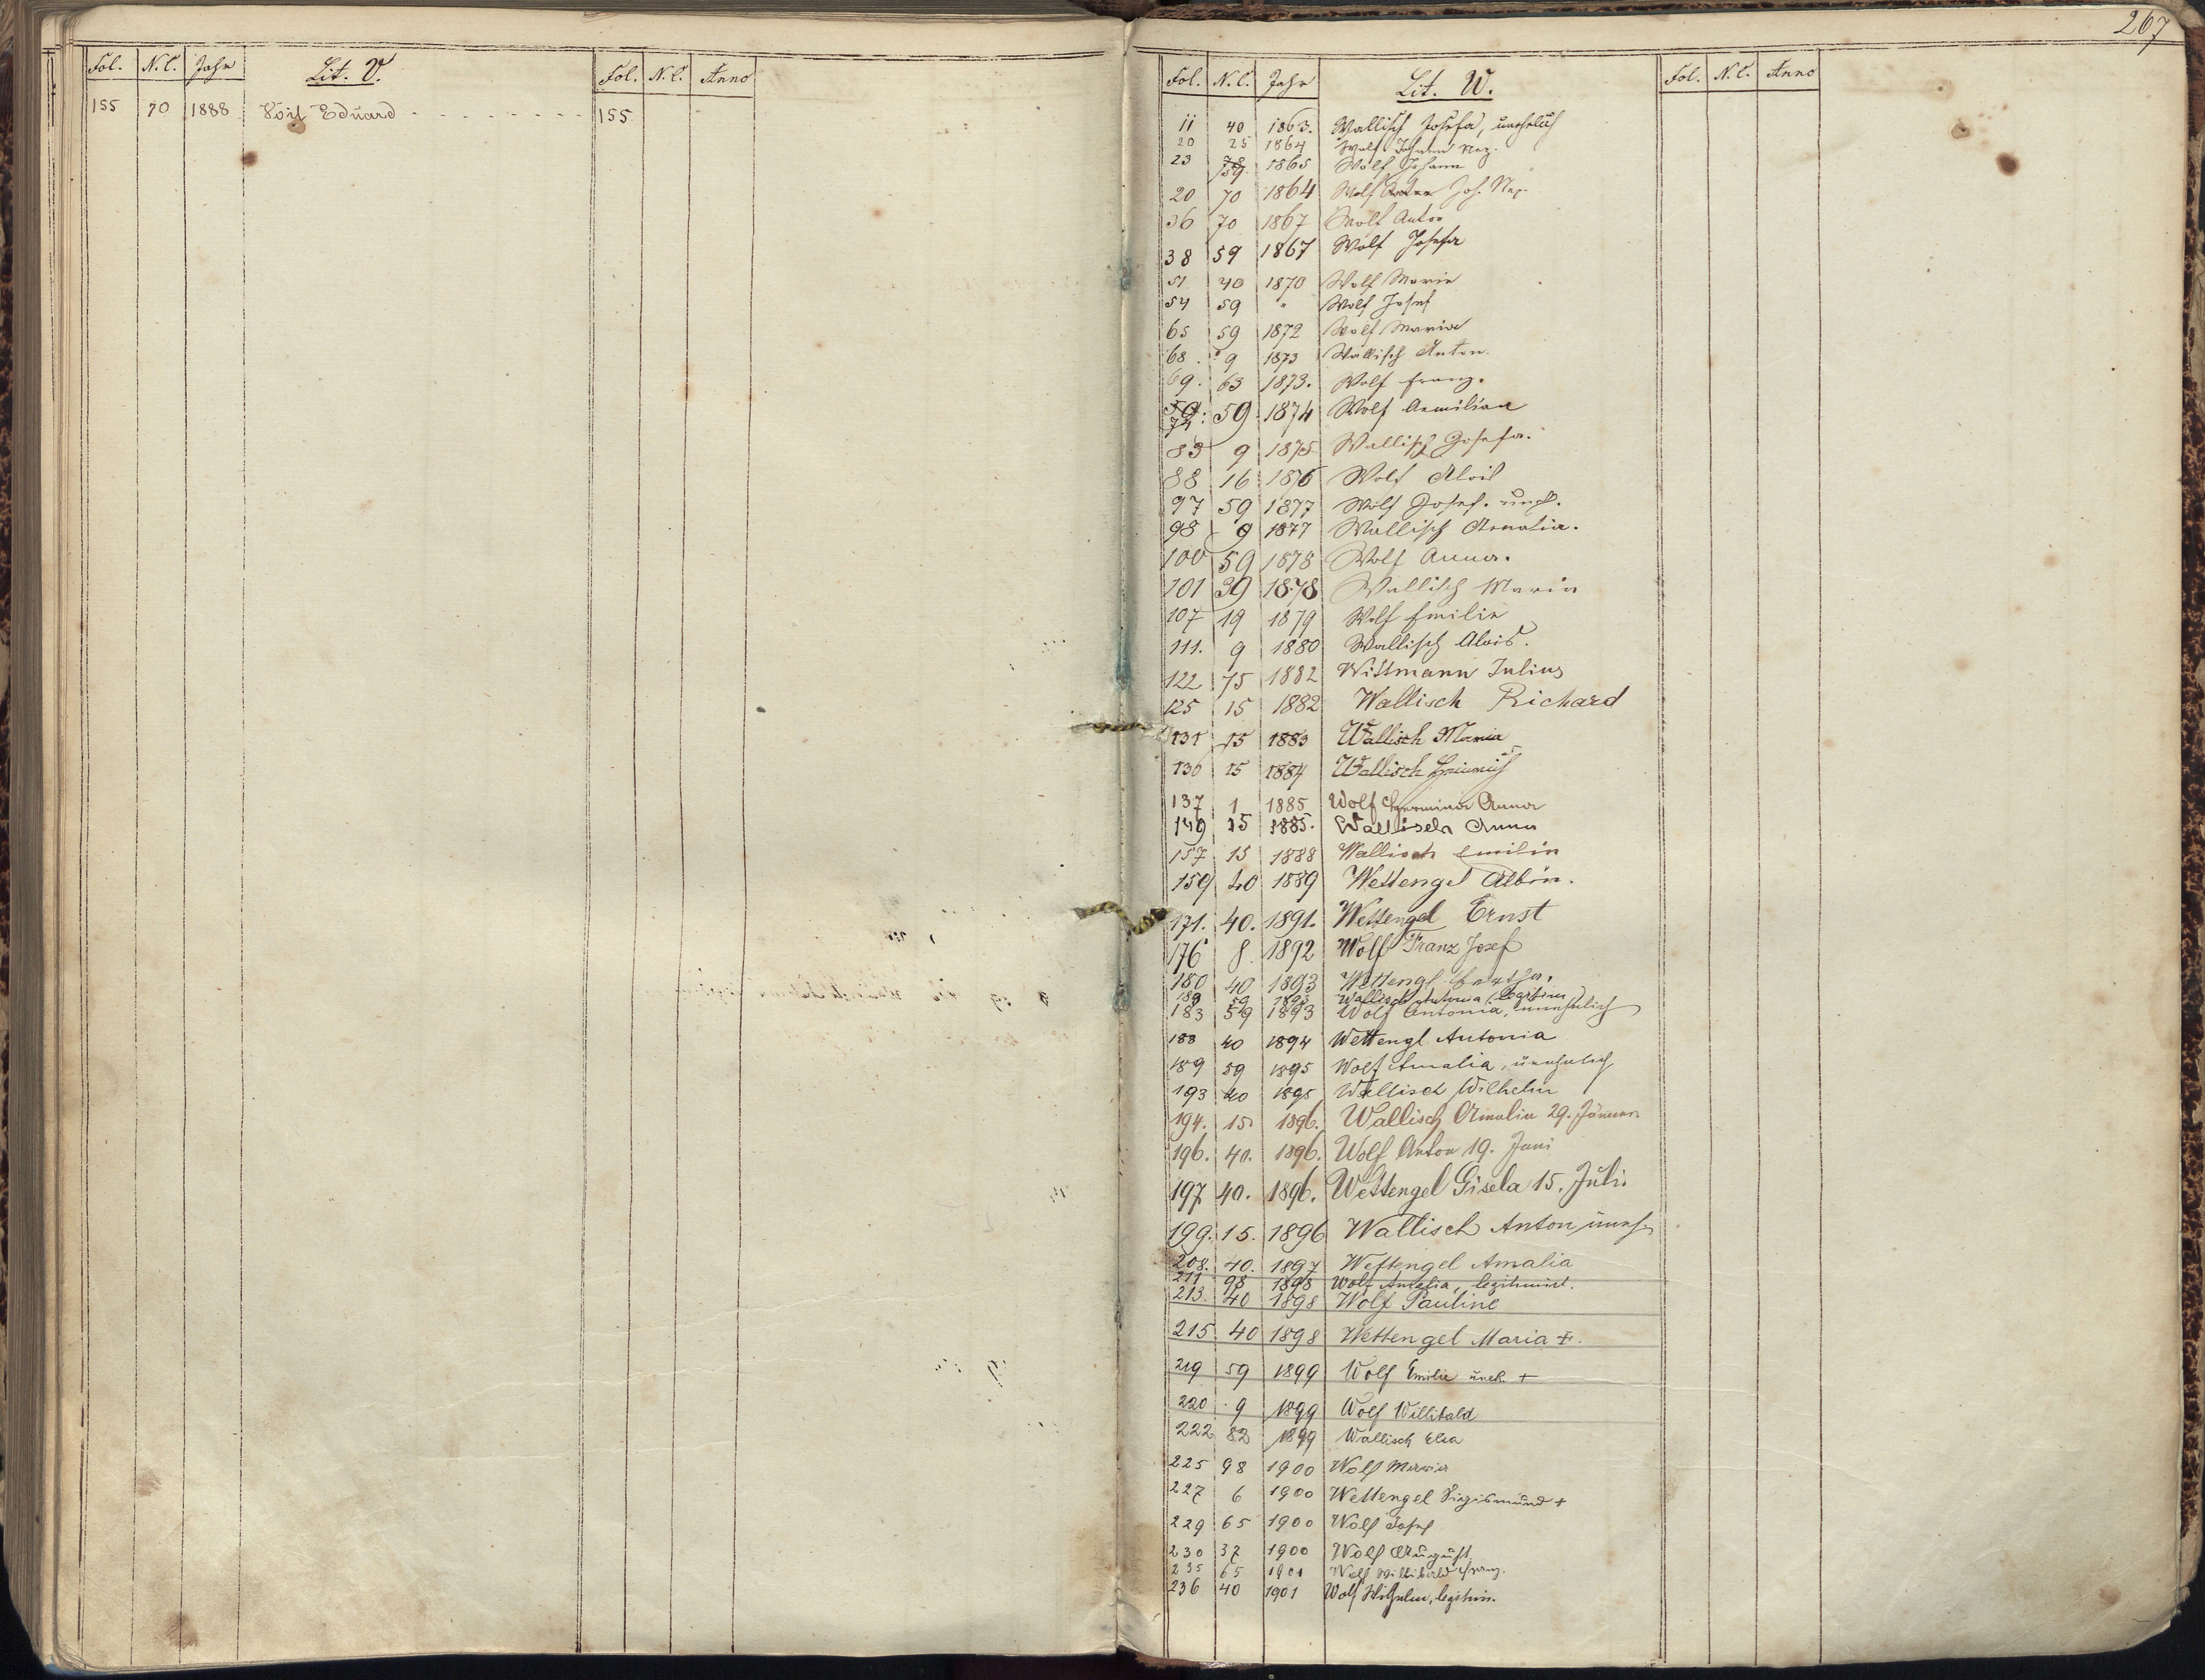 Fol. N.C. Jahr Lit. V. Fol. N.C. Anno
155 70 1888 Voit Eduard - - - - - - - - 155
267
Fol. N.C. Jahr Lit. W. Fol. N.C. Anno
11 40 1863. Wallisch Josefa, unehelich
20 25 1864 Wolf Johann Nep.
23 159 1865 Wolf Johann
20 70 1864 Wolf Joh. Nep.
36 70 1867 Wolf Anton
38 59 1867 Wolf Josefa
51 40 1870 Wolf Marie
54 59 " Wolf Josef
65 59 1872 Wolf Maria
68. 9 1873 Wallisch Anton.
69. 63 1873. Wolf Franz.
74. 59. 1874 Wolf Aemilian
83 9 1875 Wallisch Josefa.
88 16 1876 Wolf Alois
97 59 1877 Wolf Josef. unehl.
98 9 1877 Wallisch Amalia.
100 59 1878 Wolf Anna.
101 39 1878 Wallisch Maria
107 19 1879 Wolf Emilie
111. 9 1880 Wallisch Alois.
122 75 1882 Wittmann Julius
125 15 1882 Wallisch Richard
131 15 1883 Wallisch Maria
136 15 1884 Wallisch Heinrich
137 1 1885 Wolf Hermina Anna
149 15 1885. Wallisch Anna
157 15 1888 Wallisch Emilie
159 40 1889 Wettengel Albin.
171. 40. 1891. Wettengel Ernst
176 8. 1892 Wolf Franz Josef
180 40 1893 Wettengl Bertha.
189 59 1895 Wallisch Antonia (Legitim)
183 59 1893 Wolf Antonia, unehelich
188 40 1894 Wettengl Antonia
189 59 1895 Wolf Amalia, unehelich
193 40 1895 Wallisch Wilhelm
194. 15 1896. Wallisch Amalia 29. Jänner
196. 40. 1896. Wolf Anton 19. Juni
197 40. 1896. Wettengel Gisela 15. Juli.
199. 15. 1896 Wallisch Anton uneh.
208. 40. 1897 Wettengel Amalia
211 98 1898 Wolf Amalia, legitimirt.
213. 40 1898 Wolf Pauline
215 40 1898 Wettengel Maria +.
219 59 1899 Wolf Emilie uneh. +
220 9 1899 Wolf Willibald
222 82 1899 Wallisch Elsa
225 98 1900 Wolf Maria
227 6 1900 Wettengel Sigismund +
229 65 1900 Wolf Josef
230 37 1900 Wolf August
235 65 1901 Wolf Willibald Franz.
236 40 1901 Wolf Wilhelm, legitim.